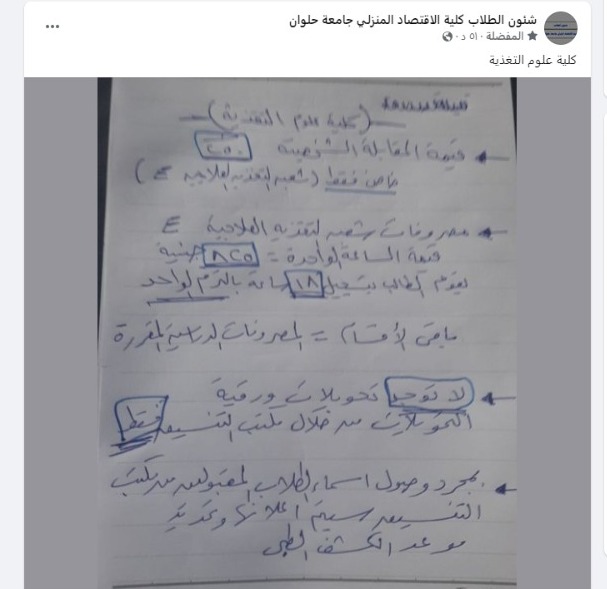 شئون الطلاب كلية الاقتصاد المنزلي جامعة حلوان
المفضلة · ٥١ د ·
كلية علوم التغذية
(كلية علوم التغذية)
قيمة المقابلة الشخصية ٢٥٠
خاص فقط (شعبة التغذية العلاجية E)
مصروفات شعبة التغذية العلاجية E
قيمة الساعة الواحدة = ٨٢٥ جنية
يقوم الطالب بتسجيل ١٨ ساعة بالترم الواحد
باقى الأقسام = المصروفات الدراسية المقررة
لا توجد تحويلات ورقية
التحويلات من خلال مكتب التنسيق فقط
بمجرد وصول اسماء الطلاب المقبولين من مكتب
التنسيق سيتم اعلانها وتحديد
موعد الكشف الطبى